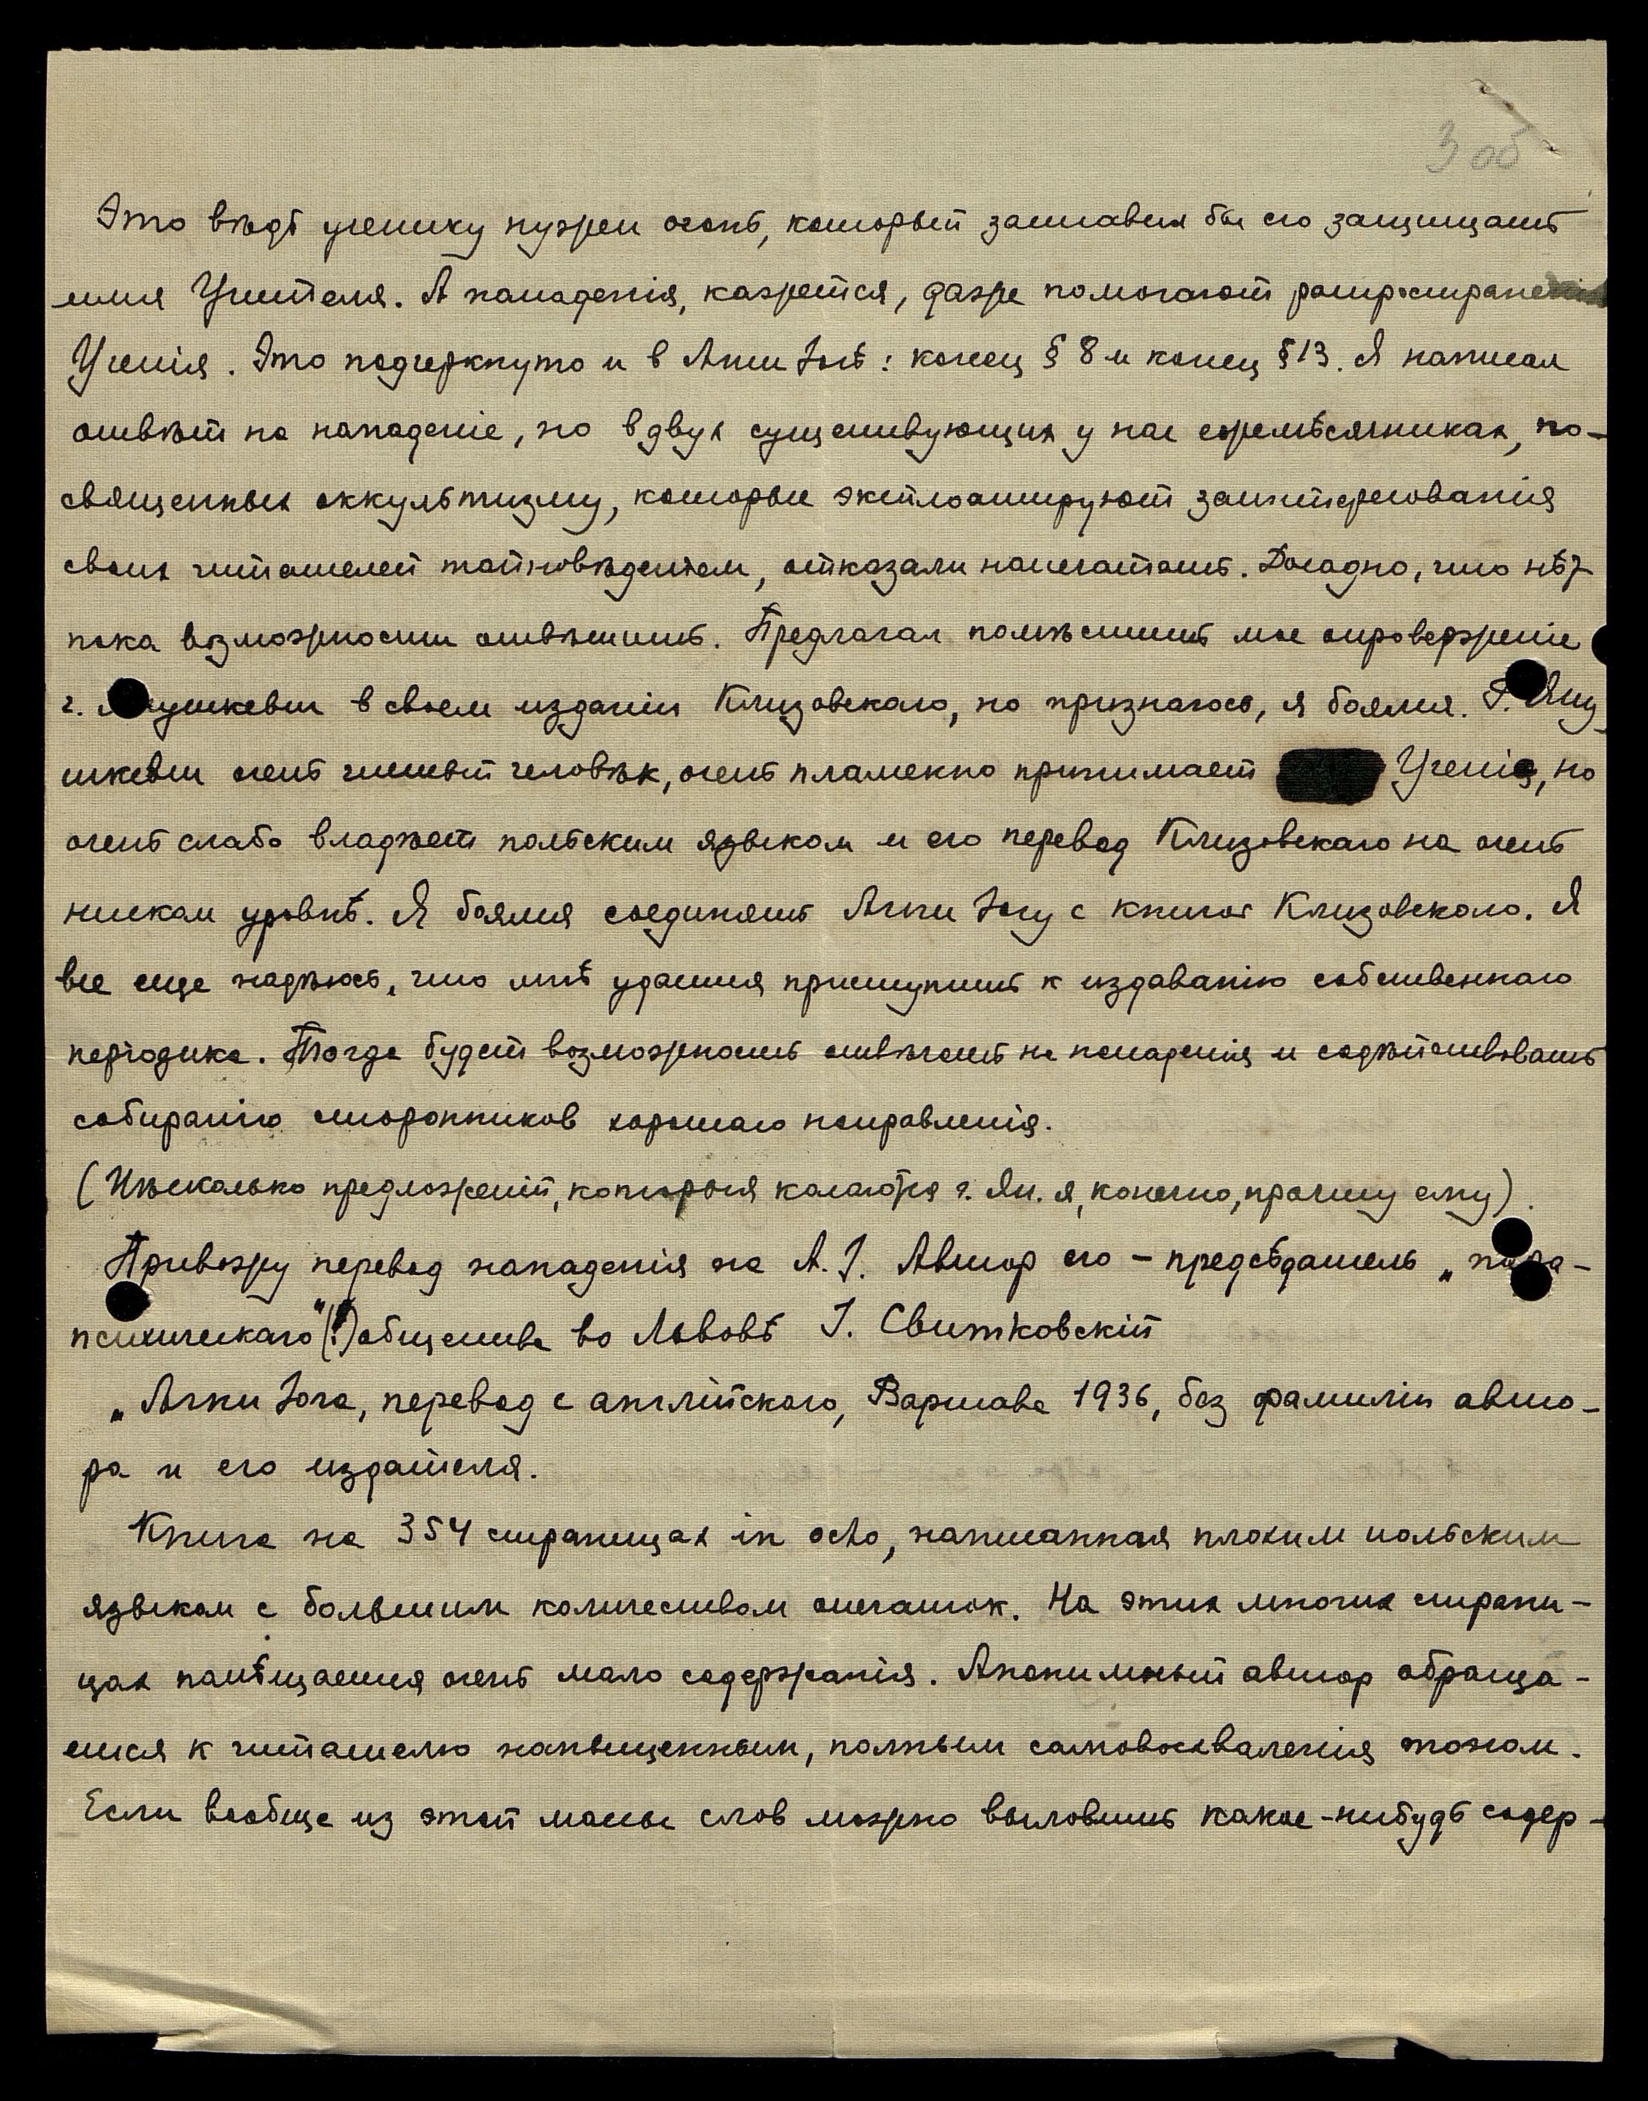 3 об
Это вѣдь ученику нужен огонь, который заставил бы его защищать
имя Учителя. А нападенія, кажется, даже помогают распространенію
Ученія. Это подчеркнуто и в Агни Іогѣ: конец § 8 и конец § 13. Я написал
отвѣт на нападеніе, но в двух существующих у нас ежемѣсячниках, по-
священных оккультизму, которые эксплоатируют заинтересованія
своих читателей тайновѣденіем, отказали напечатать. Досадно, что нѣт
пока возможности отвѣтить. Предлагал помѣстить мое опроверженіе
г. Янушкевич в своем изданіи Клизовскаго, но признаюсь, я боялся. Г. Яну-
шкевич очень чистый человѣк, очень пламенно принимает Ученія, но
очень слабо владѣет польским языком и его перевод Клизовскаго на очень
низком уровнѣ. Я боялся соединять Агни Іогу с книгой Клизовскаго. Я
все еще надѣюсь, что мнѣ удастся приступить к издаванію собственнаго
періодика. Тогда будет возможность отвѣчать на нападенія и содѣйствовать
собиранію сторонников хорошаго направленія.
(Нѣсколько предложеній, которыя касаются г. Ян. я, конечно, прочту ему).
Привожу перевод нападенія на А. І. Автор его – предсѣдатель „пара-
психическаго" (!) общества во Львовѣ І. Свитковскій
„Агни Іога, перевод с англійскаго, Варшава 1936, без фамиліи авто-
ра и его издателя.
Книга на 354 страницах in octo, написанная плохим польским
языком с большим количеством опечаток. На этих многих страни-
цах помѣщается очень мало содержанія. Анонимный автор обраща-
ется к читателю напыщенным, полным самовосхваленія тоном.
Если вообще из этой массы слов можно выловить какое-нибудь содер-